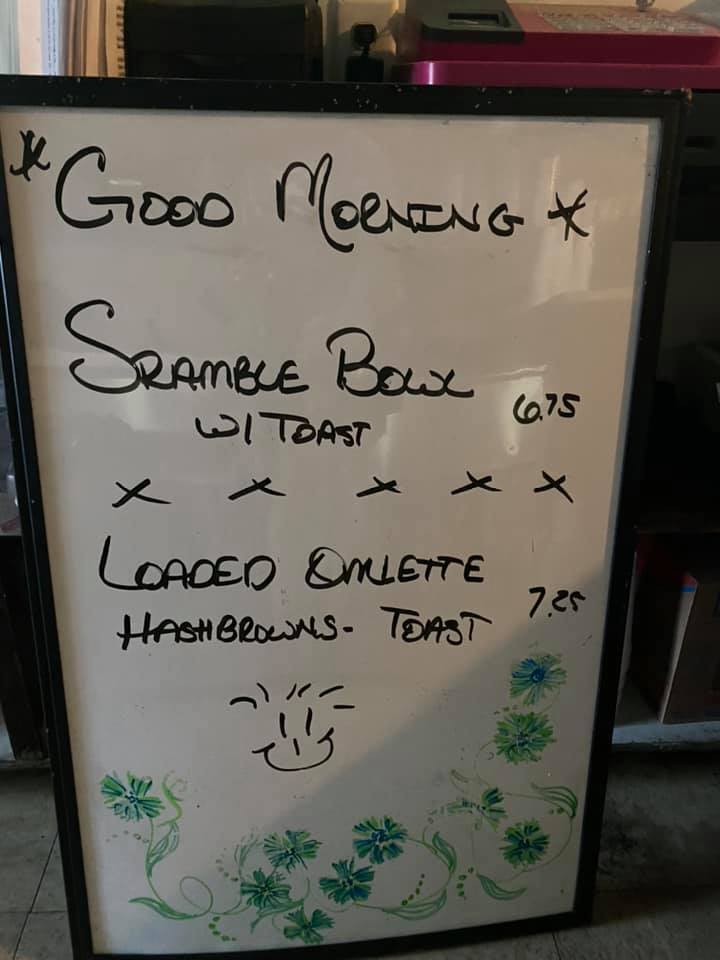 * GOOD MORNING *
SRAMBLE BOWL
W/ TOAST 6.75
x x x x x
LOADED OMLETTE
HASHBROWNS- TOAST 7.25